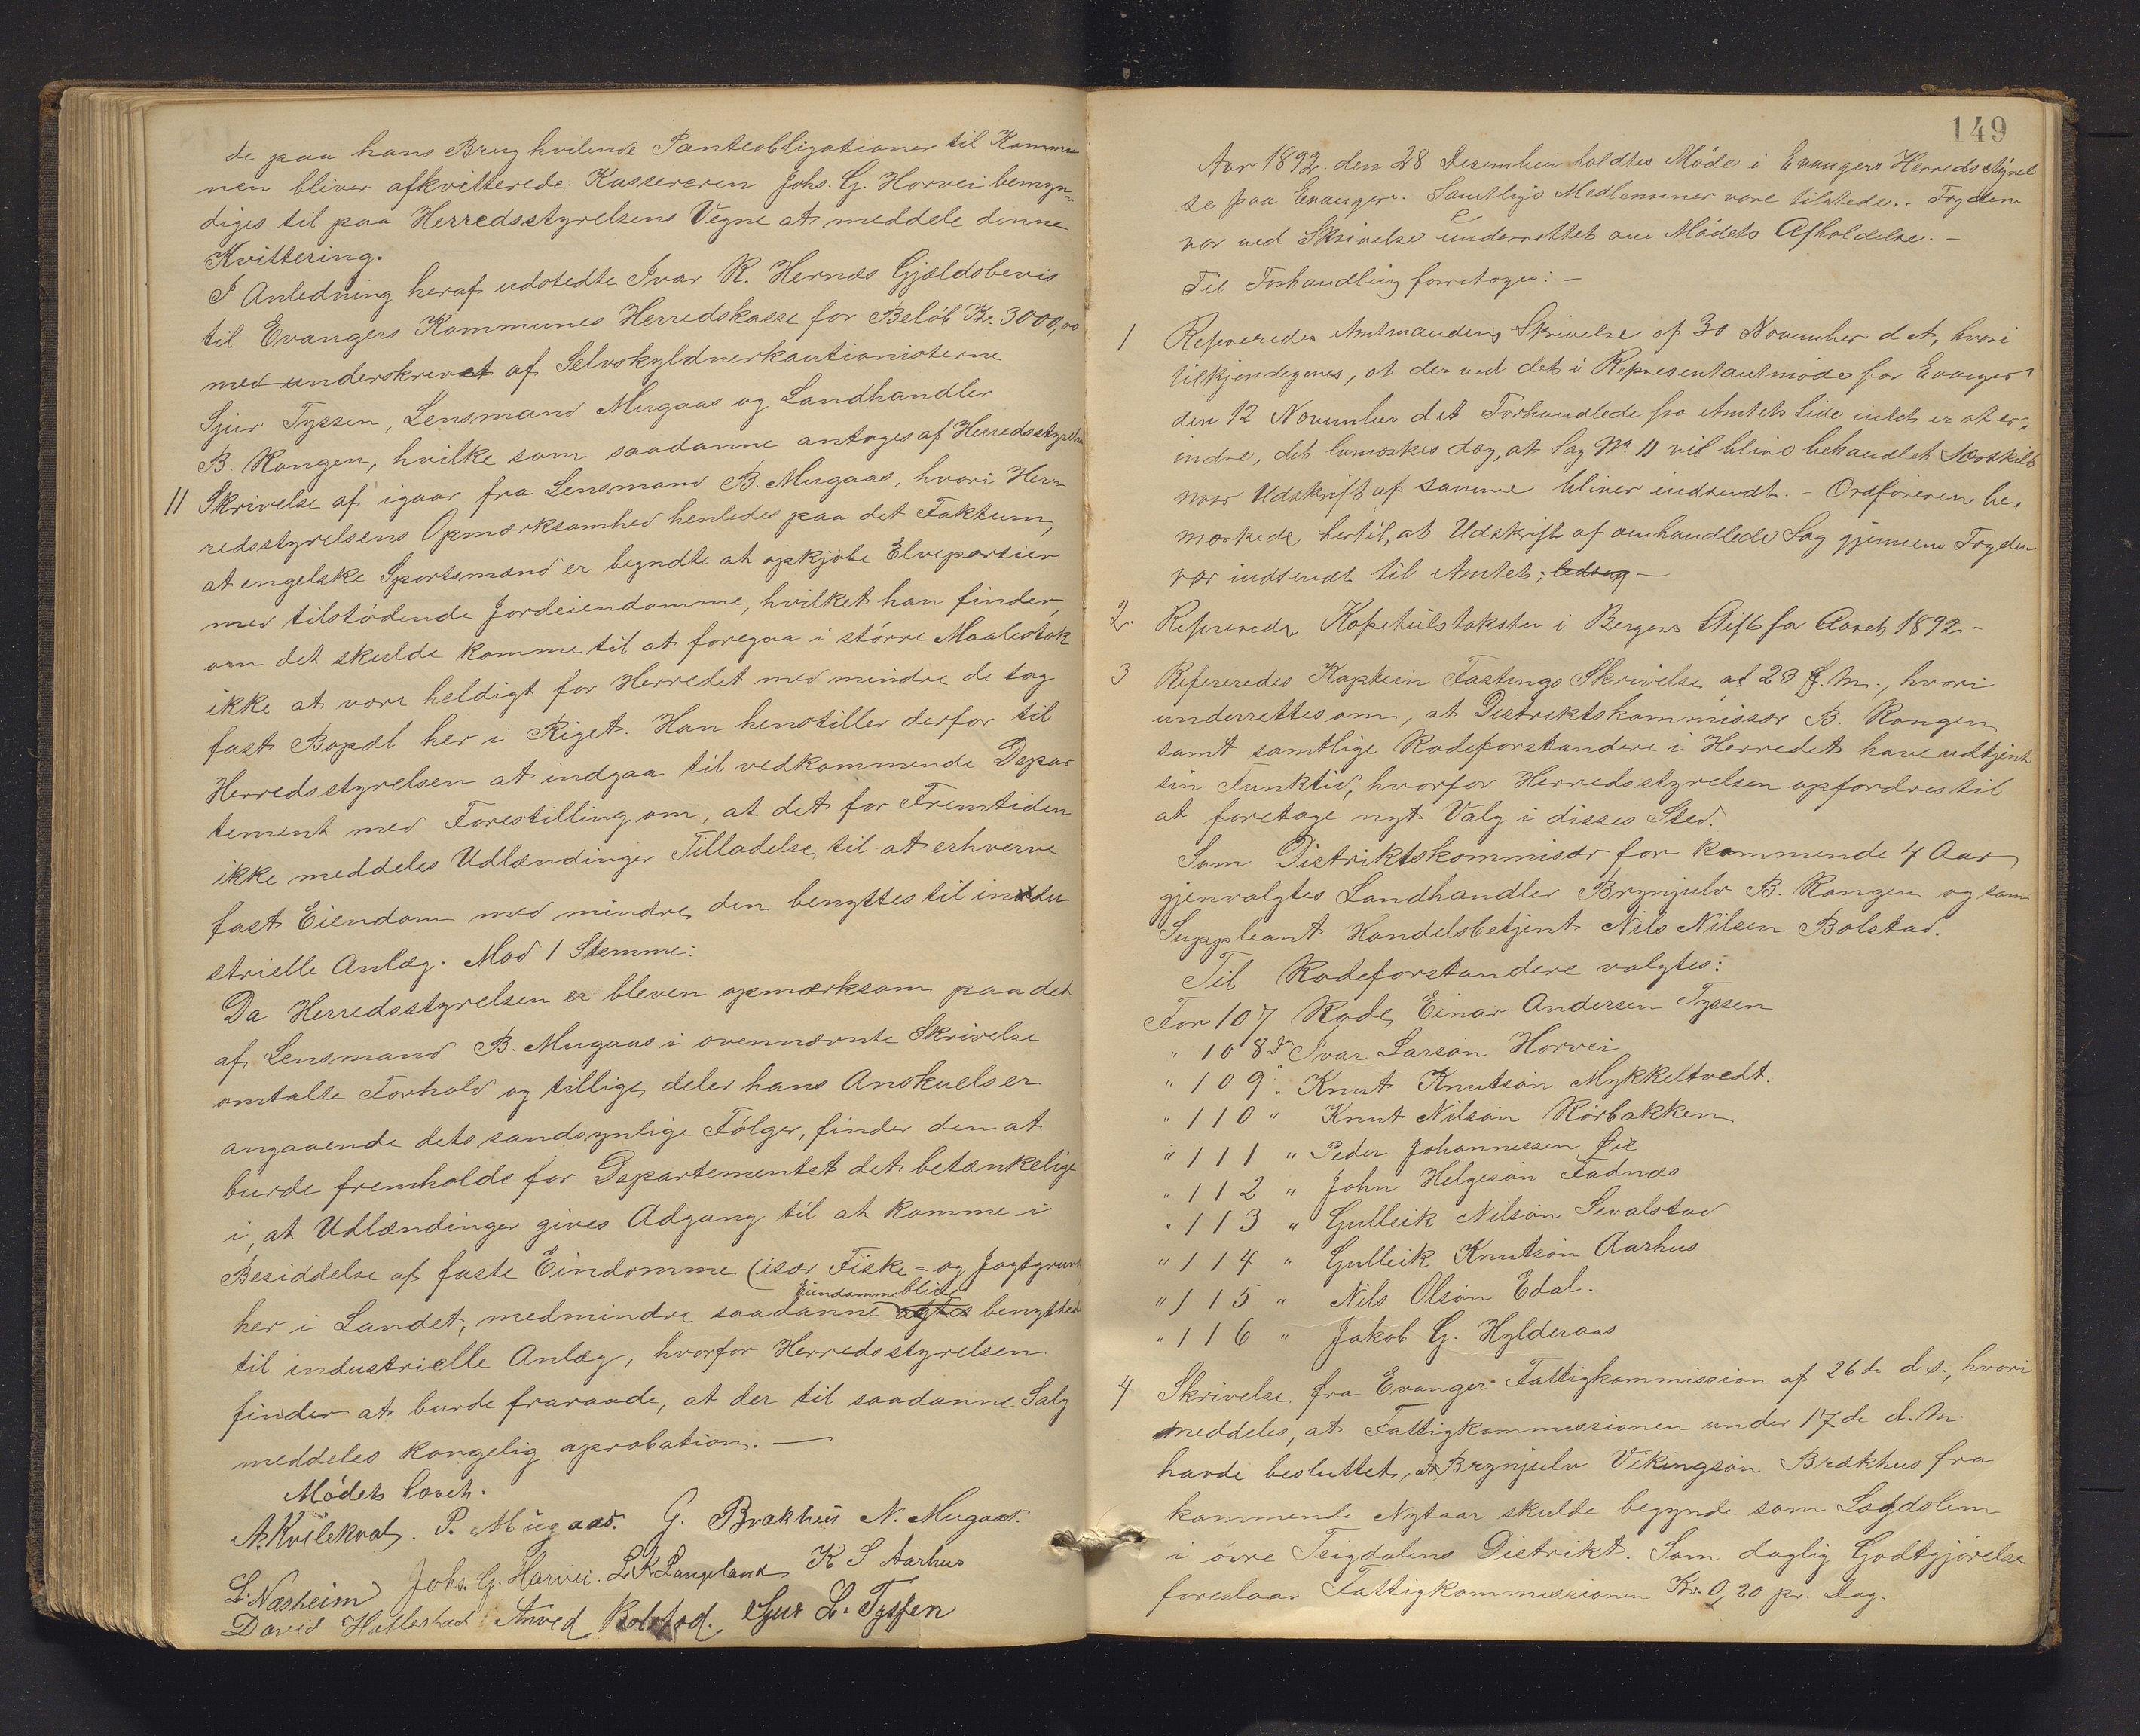 de paa hans Brug hvilende Panteobligationer til Kommu
nen bliver afkvitterede. Kassereren Johs. G. Horvei bemyn-
diges til paa Herredsstyrelsens Vegne at meddele denne
Kvittering.
I Anledning heraf udstedte Ivar R. Hernæs Gjældsbevis
til Evangers Kommunes Herredskasse for Beløb Kr. 3000,00
med underskrevet af Selvskyldnerkautionisterne
Sjur Tyssen, Lensmand Mugaas og Landhandler
B. Rongen, hvilke som saadanne antoges af Herredsstyrelsen
11 Skrivelse af igaar fra Lensmand B. Mugaas, hvori Her-
redsstyrelsens Opmærksomhed henledes paa det Faktum,
at engelske Sportsmænd er begyndte at opkjøbe Elvepartier
med tilstødende Jordeiendomme, hvilket han finder,
om det skulde komme til at foregaa i større Maalestok
ikke at være heldigt for Herredet med mindre de tog
fast Bopæl her i Riget. Han henstiller derfor til
Herredsstyrelsen at indgaa til vedkommende Depar
tement med Forestilling om, at det for Fremtiden
ikke meddeles Udlændinger Tilladelse til at erhverve
fast Eiendom med mindre den benyttes til indu
strielle Anlæg. Mod 1 Stemme:
Da Herredsstyrelsen er bleven opmærksom paa det
af Lensmand B. Mugaas i ovennævnte Skrivelse
omtalte Forhold og tillige deler hans Anskuelser
angaaende dets sandsynlige Følger, finder den at
burde fremholde for Departementet det betænkelige
i, at Udlændinger gives Adgang til at komme i
Besiddelse af faste Eindomme (især Fiske- og Jagtgrund
Eiendomme blive
her i Landet, medmindre saadanne agtes benyttede
til industrielle Anlæg, hvorfor Herredsstyrelsen
finder at burde fraraade, at der til saadanne Salg
meddeles kongelig aprobation. —
Mødet hævet.
A. Kvilekval. P. Mugaas. G. Brækhus N. Mugaas.
L. Næsheim Johs. G. Horvei. L. K. Langeland K S Aarhus
David Hallestad Anved Bolstad. Sjur L. Tyssen
149
Aar 1892 den 28 Desember holdtes Møde i Evangers Herredsstyrel
se paa Evanger. Samtlige Medlemmer vare tilstede. Fogden
var ved Skrivelse underrettet om Mødets Afholdelse. —
Til Forhandling foretoges: —
1 Refereredes Amtmandens Skrivelse af 30 November d. A, hvori
tilkjendegives, at der ved det i Representantmøde for Evanger
den 12 November d. A Forhandlede fra Amtets Side intet er at er-
indre, det bemærkes dog, at Sag No 11 vil blive behandlet særskilt
naar Udskrift af samme bliver indsendt. – Ordføreren be-
mærkede hertil, at Udskrift af omhandlede Sag gjennem Fogden
var indsendt til Amtet; —
2. Refereredes Kapitelstaksten i Bergens Stift for Aaret 1892 –
3 Refereredes Kaptein Fastings Skrivelse af 23 f. M., hvori
underrettes om, at Distriktskommissær B. Rongen
samt samtlige Rodeforstandere i Herredet have udtjent
sin Funktid, hvorfor Herredsstyrelsen opfordres til
at foretage nyt Valg i disses Sted.
Som Distriktskommisær for kommende 4 Aar
gjenvalgtes Landhandler Brynjulv B. Rongen og som
Suppleant Handelsbetjent Nils Nilsen Bolstad.
Til Rodeforstandere valgtes:
For 107 Rode Einar Andersen Tyssen
" 108 do Ivar Larsøn Horvei
" 109 " Knut Knutsøn Mykkeltvedt.
" 110 " Knut Nilsøn Rørbakken
" 111 " Peder Johannessen Øie
" 112 " John Helgesøn Fadnæs
" 113 " Gulleik Nilsøn Sevalstad
" 114 " Gulleik Knutsøn Aarhus
" 115 " Nils Olsøn Edal.
" 116 " Jakob G. Hylderaas
4 Skrivelse fra Evanger Fattigkommission af 26de d.s., hvori
meddeles, at Fattigkommissionen under 17de d.M.
havde besluttet, at Brynjulv Vikingsøn Brækhus fra
kommende Nytaar skulde begynde som Lægdslem
i øvre Teigdalens Distrikt. Som daglig Godtgjørelse
foreslaar Fattigkommissionen Kr. 0,20 pr. Dag.